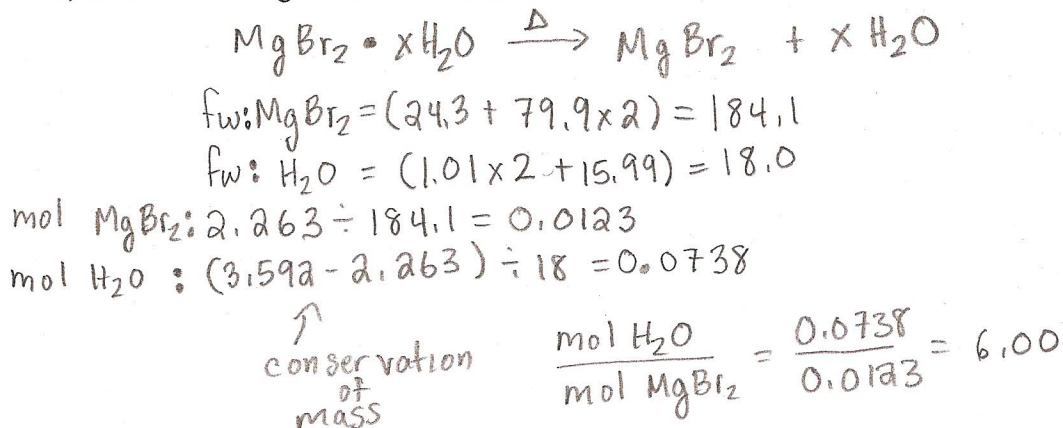 MgBr₂ • xH₂O —Δ→ MgBr₂ + xH₂O
fw: MgBr₂ = (24.3 + 79.9×2) = 184.1
fw: H₂O = (1.01×2 + 15.99) = 18.0
mol MgBr₂: 2.263 ÷ 184.1 = 0.0123
mol H₂O : (3.592 - 2.263) ÷ 18 = 0.0738
↑
conservation
of
mass
mol H₂O / mol MgBr₂ = 0.0738 / 0.0123 = 6.00